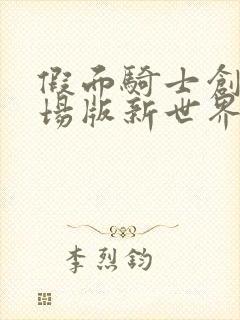 假面騎士創
場版新世界
李烈鈞